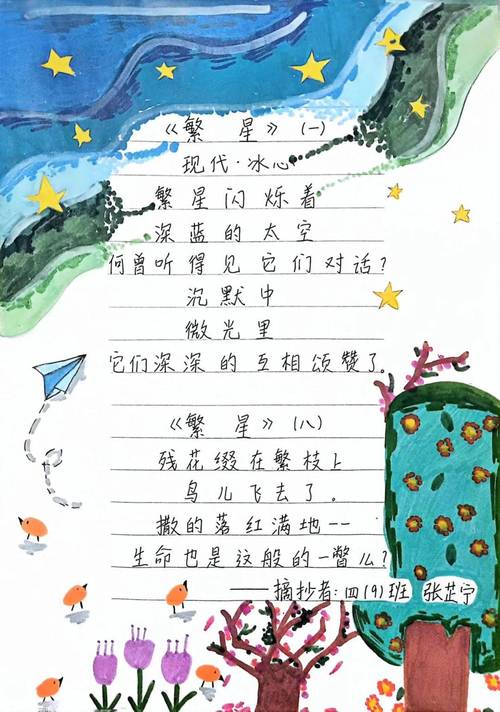 《繁星》(一)
现代·冰心
繁星闪烁着
深蓝的太空
何曾听得见它们对话？
沉默中
微光里
它们深深的互相颂赞了。
《繁星》(八)
残花缀在繁枝上
鸟儿飞去了。
撒的落红满地--
生命也是这般的一瞥么？
——摘抄者:四(9)班 张芷宁